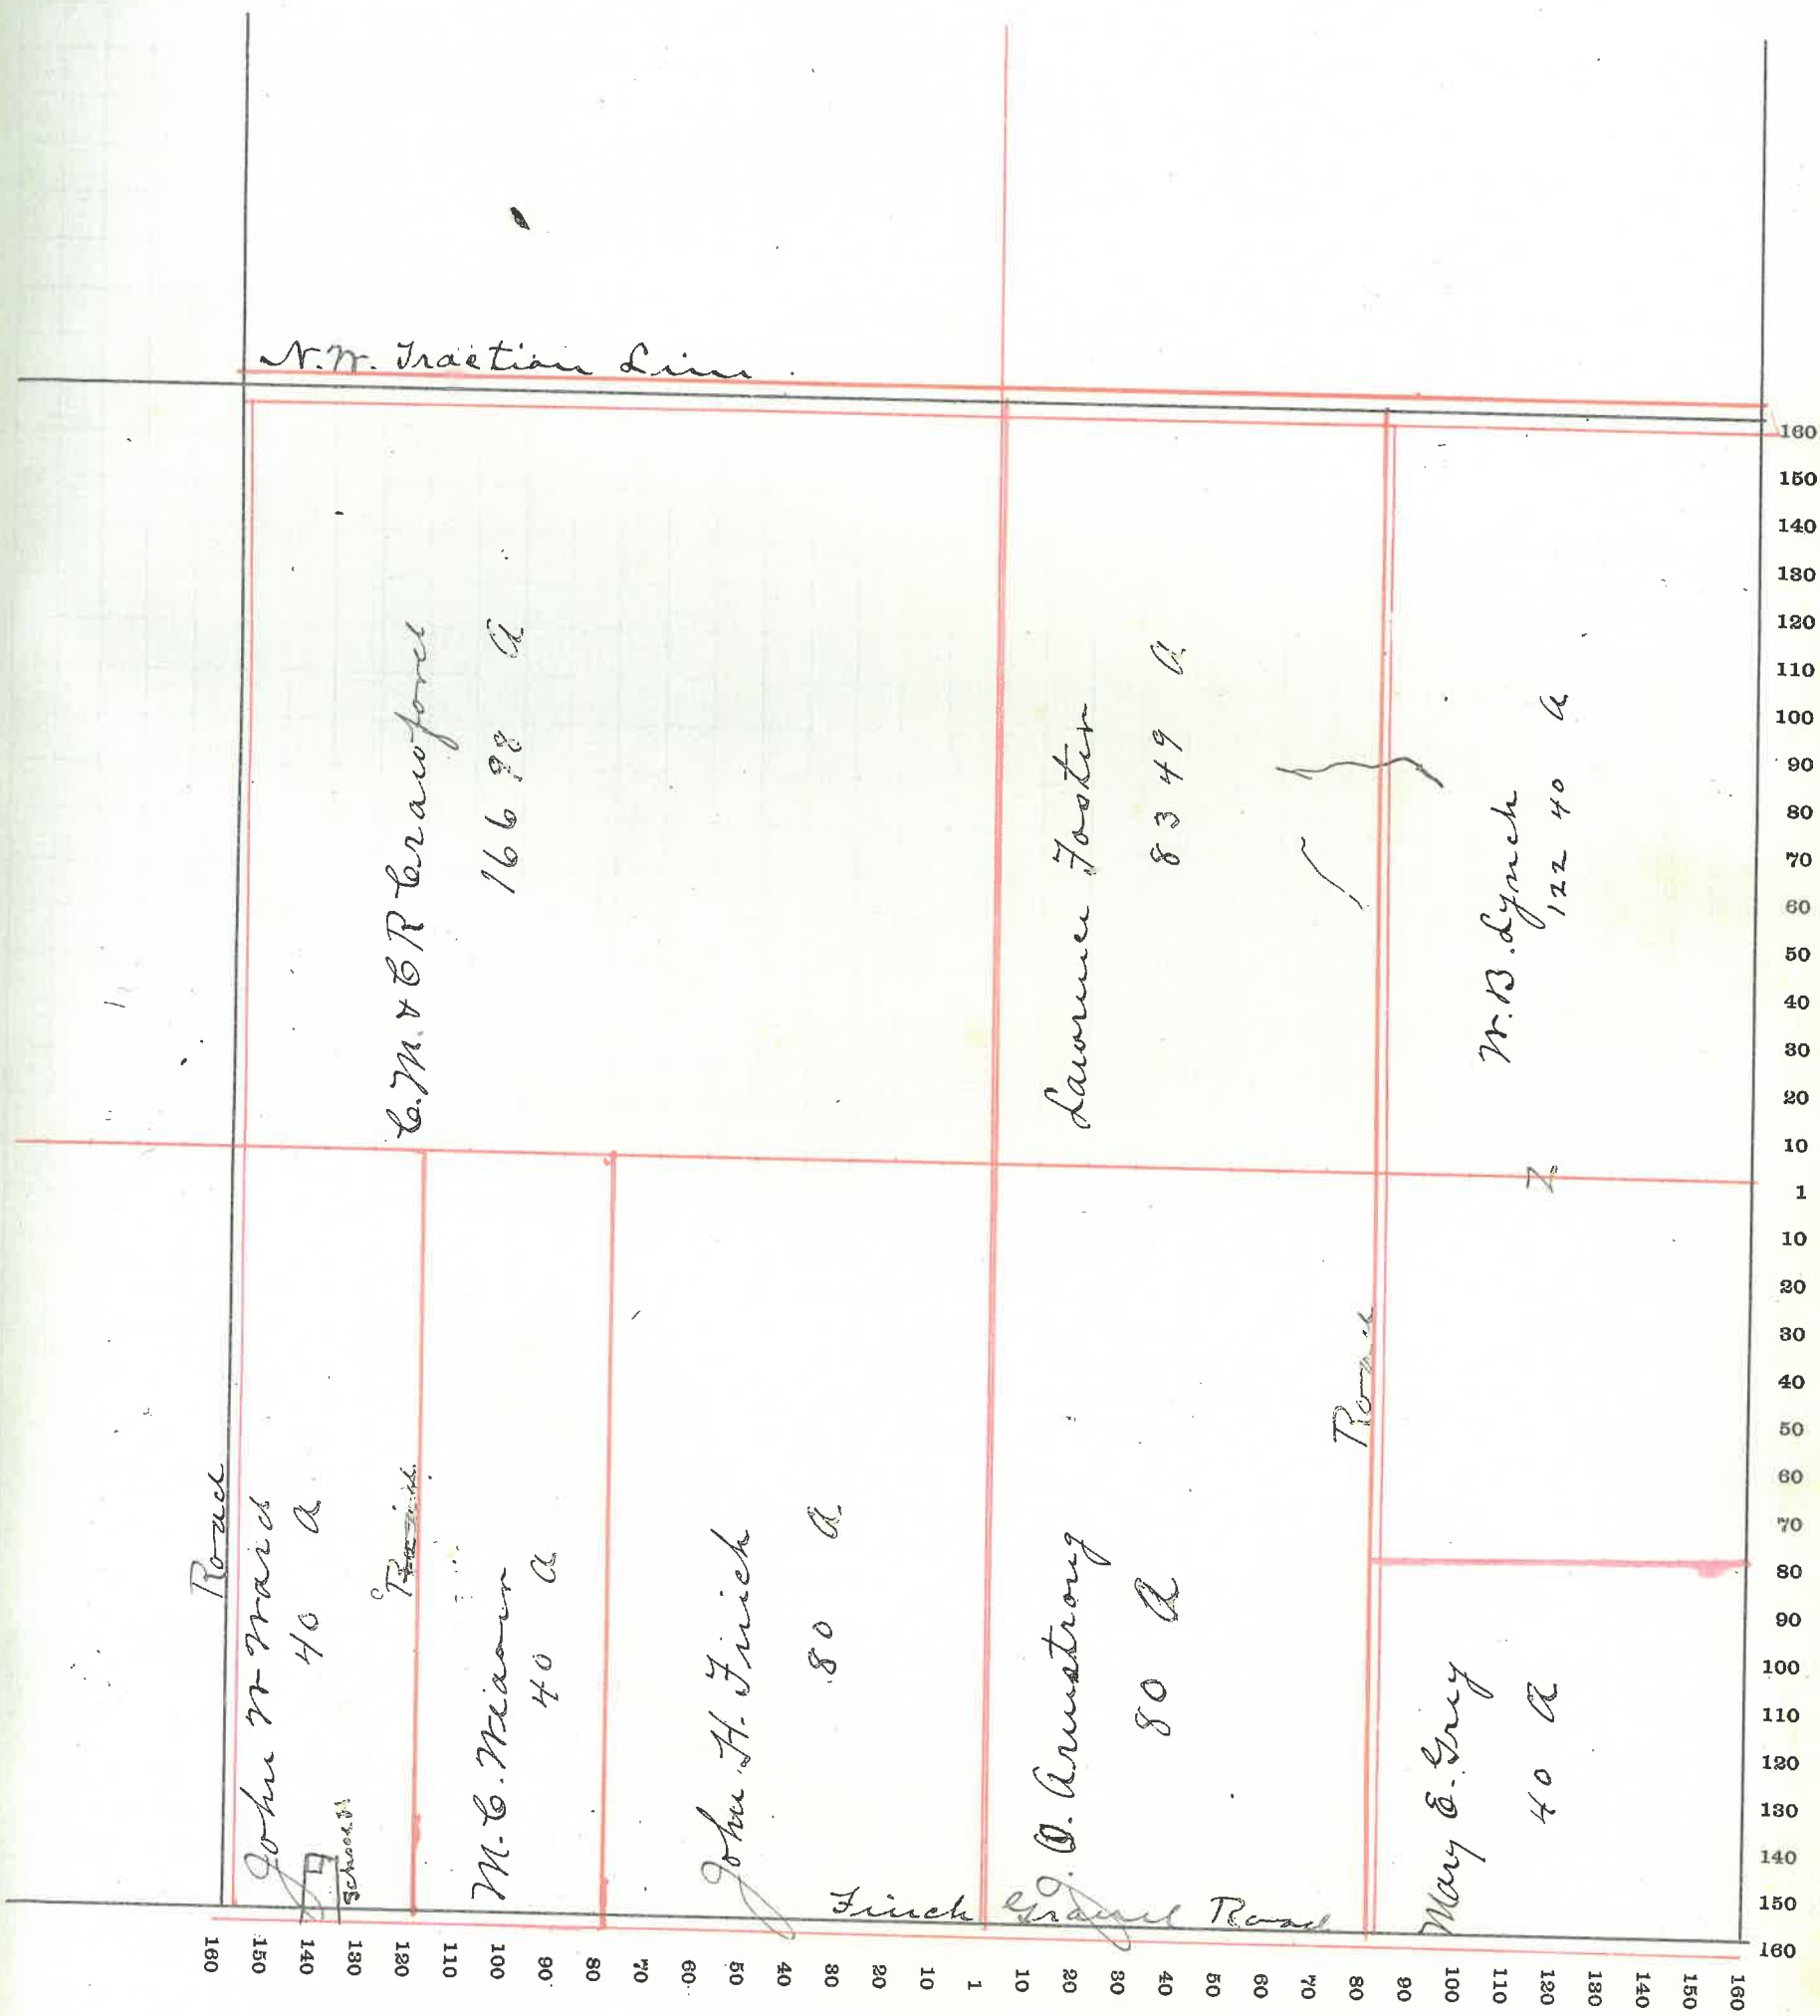 N.W. Traction Line
C.M. & C R Crawford
166 98 a
Lawrence Foster
83 49 a
W. B. Lynch
122 40 a
Road
John W Ward
40 a
School H
Road
M. C.
40 a
John H. Finch
80 a
J. O. Armstrong
80 a
Road
Mary E. Gray
40 a
Finch Gravel Road
160
150
140
130
120
110
100
90
80
70
60
50
40
30
20
10
1
10
20
30
40
50
60
70
80
90
100
110
120
130
140
150
160
160 150 140 130 120 110 100 90 80 70 60 50 40 30 20 10 1 10 20 30 40 50 60 70 80 90 100 110 120 130 140 150 160